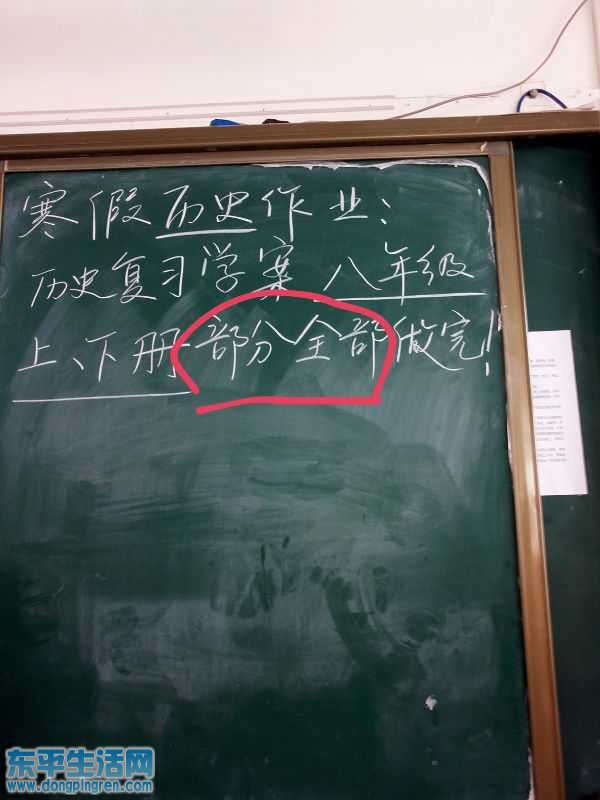 寒假历史作业:
历史复习学案 八年级
上、下册 部分全部做完!
东平生活网
www.dongpingren.com